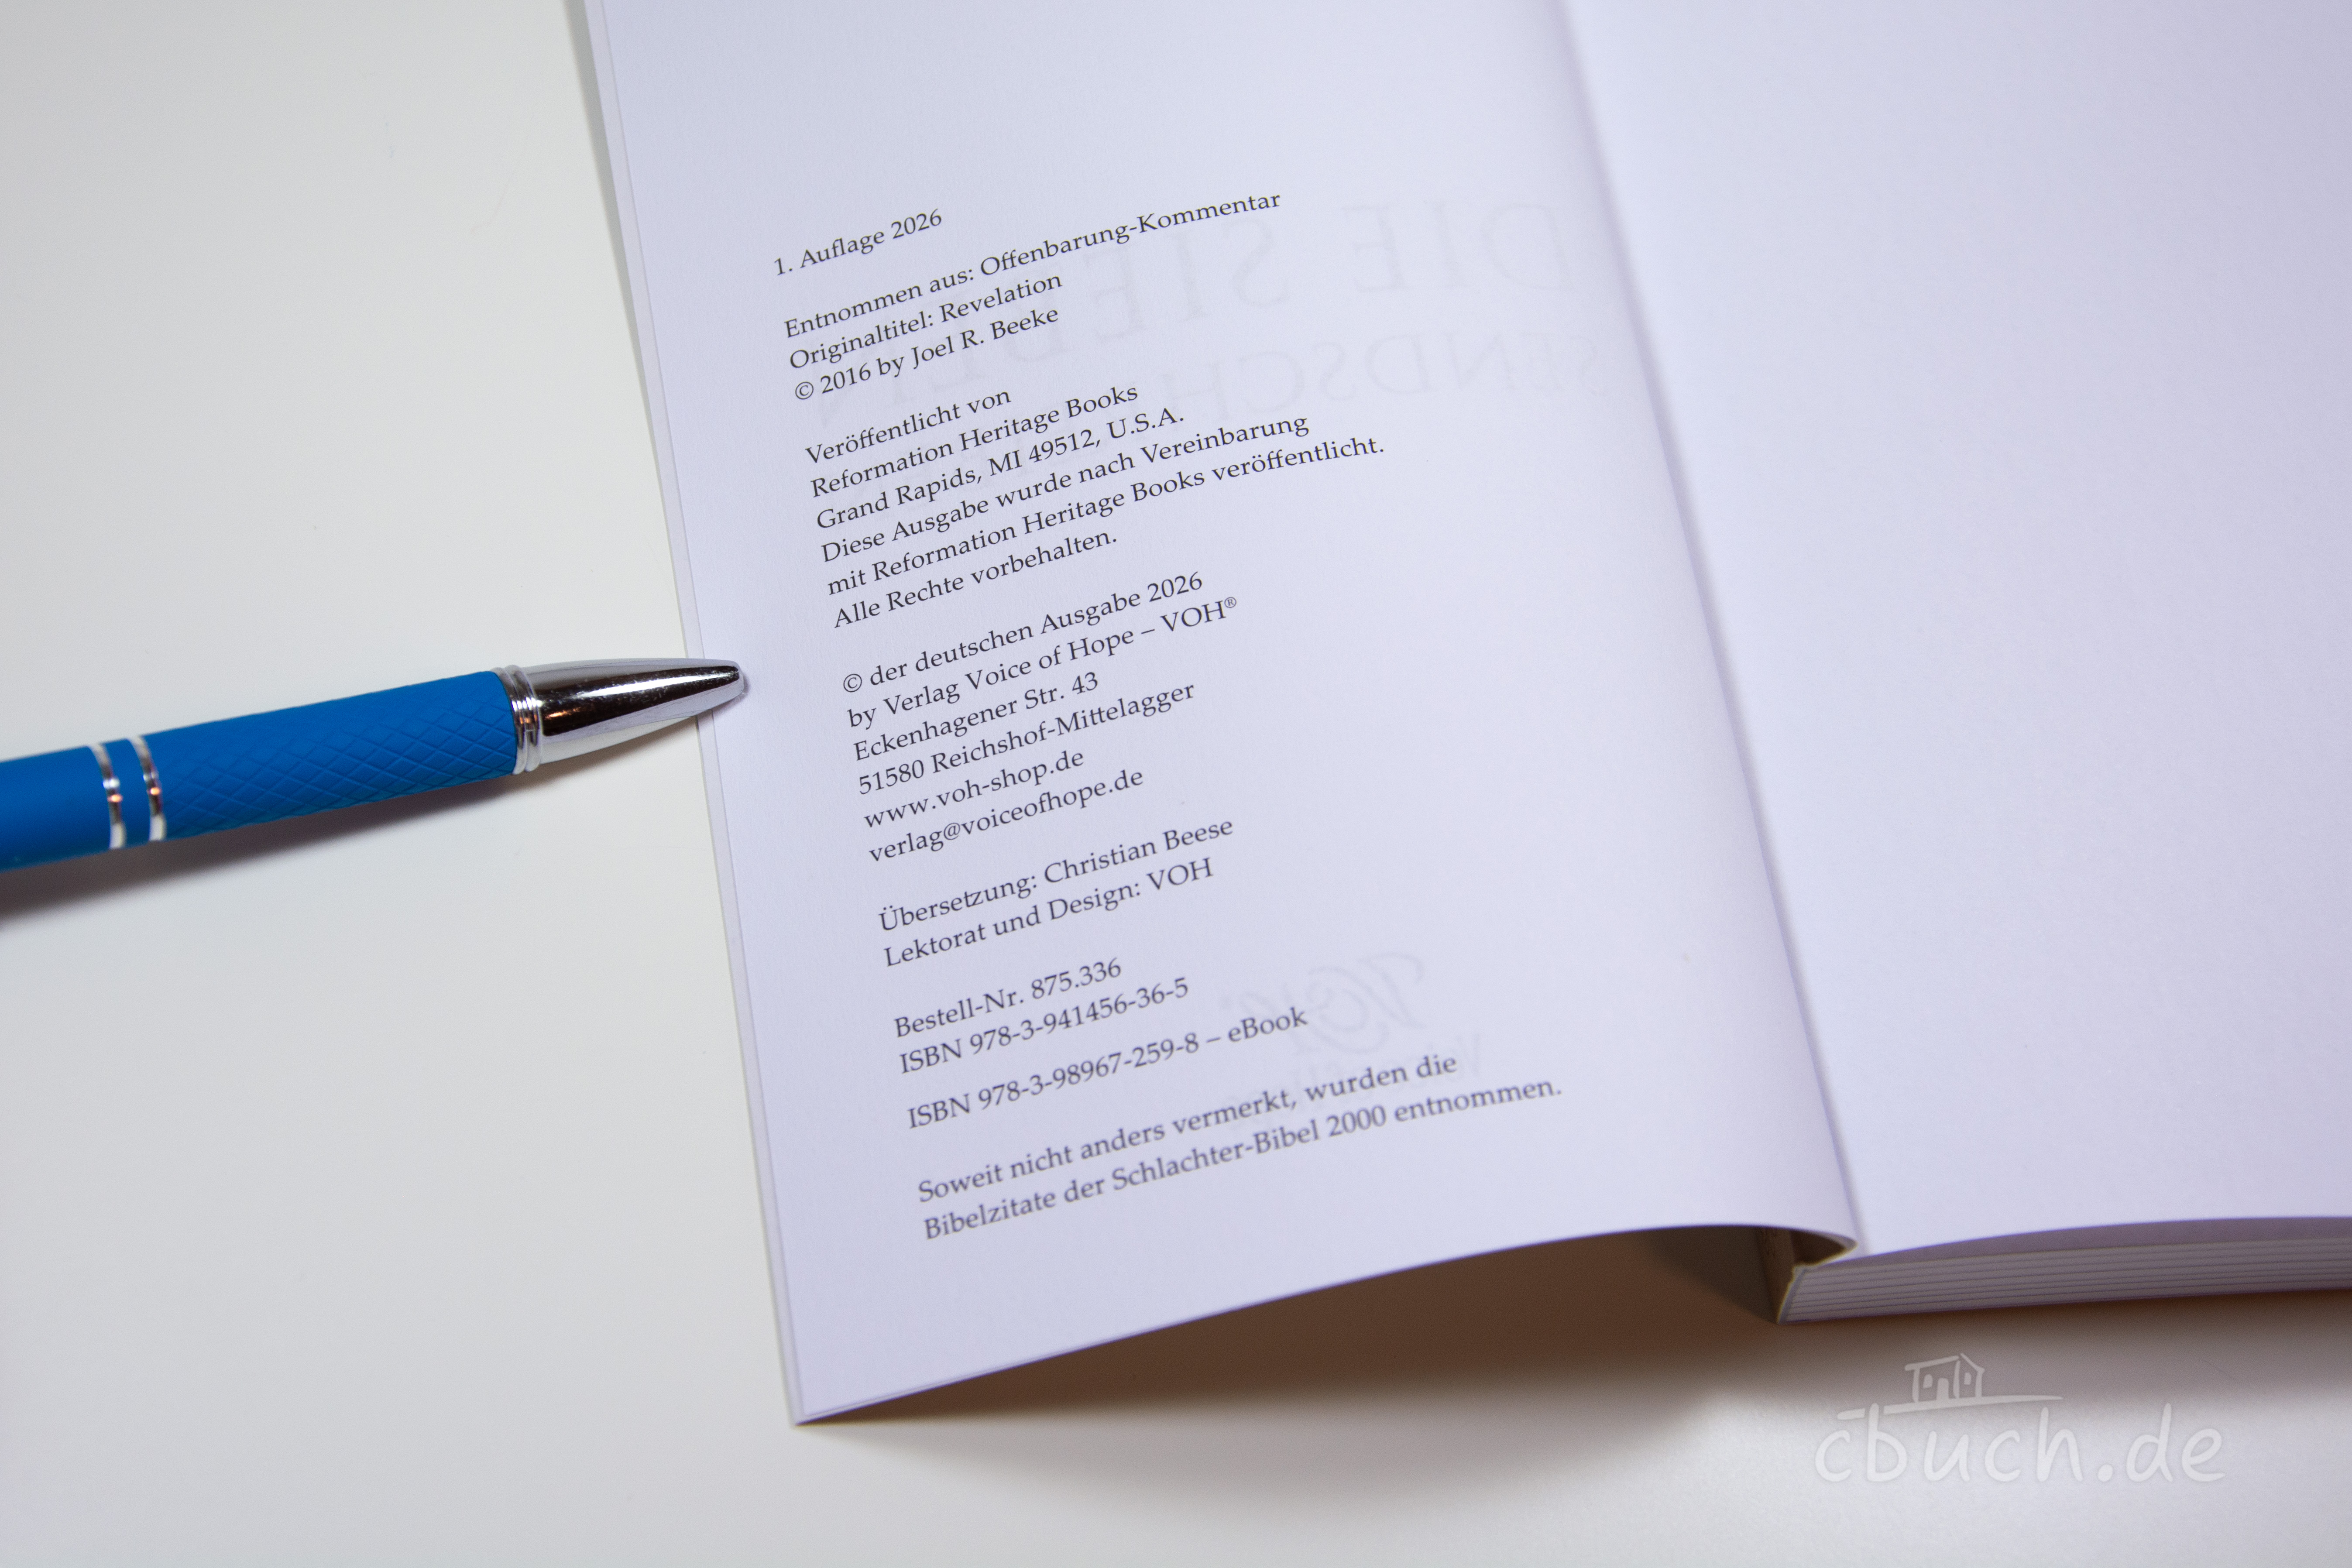 1. Auflage 2026
Entnommen aus: Offenbarung-Kommentar
Originaltitel: Revelation
© 2016 by Joel R. Beeke
Veröffentlicht von
Reformation Heritage Books
Grand Rapids, MI 49512, U.S.A.
Diese Ausgabe wurde nach Vereinbarung
mit Reformation Heritage Books veröffentlicht.
Alle Rechte vorbehalten.
© der deutschen Ausgabe 2026
by Verlag Voice of Hope – VOH®
Eckenhagener Str. 43
51580 Reichshof-Mittelagger
www.voh-shop.de
verlag@voiceofhope.de
Übersetzung: Christian Beese
Lektorat und Design: VOH
Bestell-Nr. 875.336
ISBN 978-3-941456-36-5
ISBN 978-3-98967-259-8 – eBook
Soweit nicht anders vermerkt, wurden die
Bibelzitate der Schlachter-Bibel 2000 entnommen.
DIE SIEBEN
cbuch.de